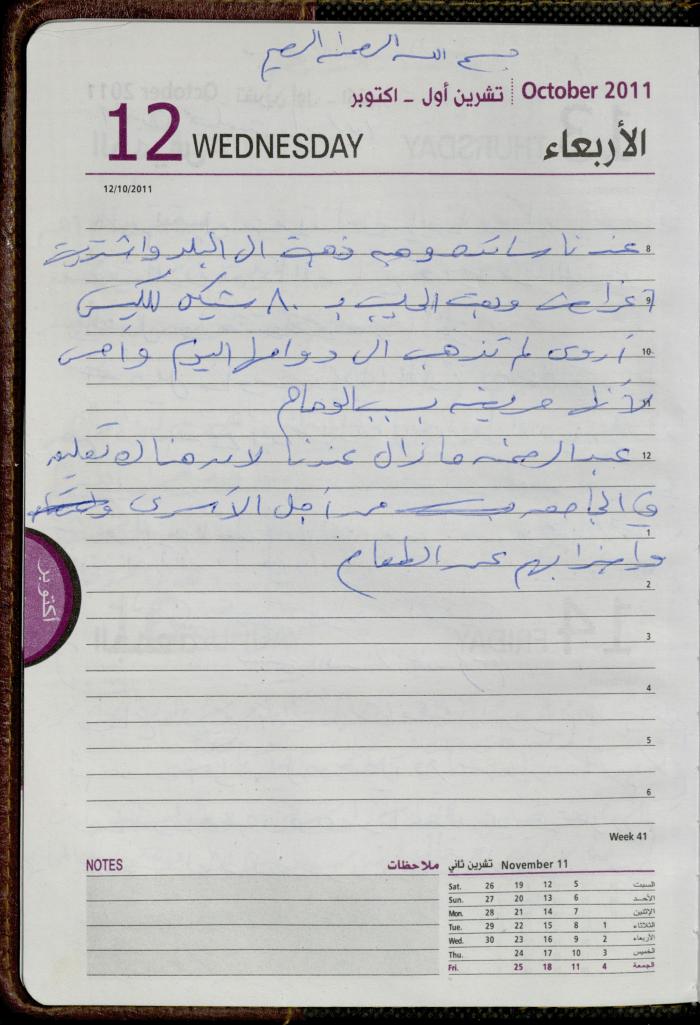 بسم الله الرحمن الرحيم
تشرين أول - اكتوبر October 2011
12 WEDNESDAY الأربعاء
12/10/2011
8 عندنا ذهبت الى البلد واشتريت
9 اغراض وبعت الحليب بـ 80 شيكل للكيس
10 أروى لم تذهب الى دوامها اليوم وأمس
11 لأنها مريضه بسبب الوحام
12 عبد الرحمن ما زال عندنا لان هناك تعليق
في الجامعه من أجل الأسرى
1 واضرابهم عن الطعام
2
3
4
5
6
اكتوبر
Week 41
NOTES ملاحظات
تشرين ثاني November 11
Sat. 26 19 12 5 السبت
Sun. 27 20 13 6 الأحد
Mon. 28 21 14 7 الإثنين
Tue. 29 22 15 8 1 الثلاثاء
Wed. 30 23 16 9 2 الأربعاء
Thu. 24 17 10 3 الخميس
Fri. 25 18 11 4 الجمعة